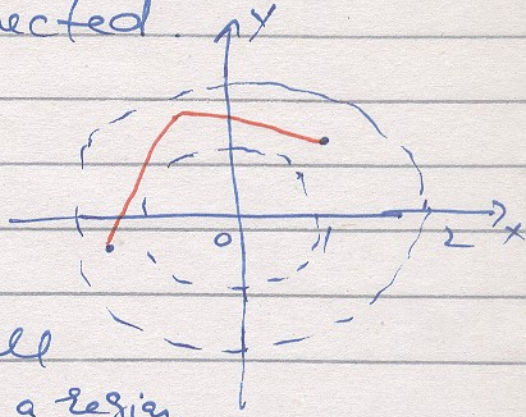 ected.
Y
0 1 2 X
ell
a region